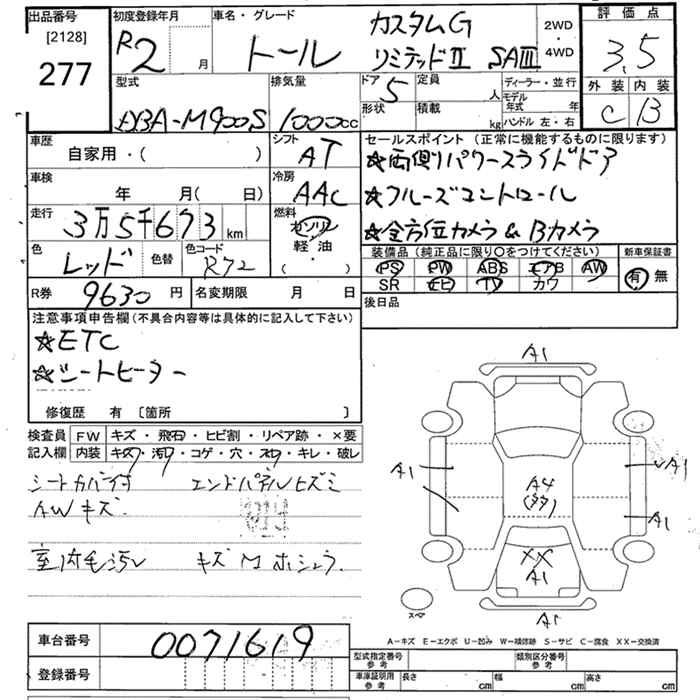 出品番号 初度登録年月 車名・グレード カスタムG 2WD・4WD 評価点
[2128] R2 月 トール リミテッドⅡ SAⅢ 3.5
277 外装 内装
型式 排気量 ドア 5 定員 人 ディーラー・並行 C B
DBA-M900S 1000cc 形状 積載 kg モデル年式 年
ハンドル 左・右
車歴 自家用・( ) シフト AT セールスポイント (正常に機能するものに限ります)
☆両側パワースライドドア
車検 年 月(日) 冷房 AAC ☆クルーズコントロール
走行 3万5千673km 燃料 ガソリン ☆全方位カメラ & Bカメラ
軽・油
・( )
色 レッド 色替 色コード R72 装備品 (純正品に限り○をつけてください) 新車保証書
PS PW ABS エアB AW 有 無
SR ナビ TV カワ
R券 9630円 名変期限 月 日 後日品
注意事項申告欄(不具合内容等は具体的に記入して下さい)
☆ETC
☆シートヒーター
修復歴 有 〔箇所 〕
検査員 FW キズ・飛石・ヒビ割・リペア跡・×要
記入欄 内装 キズ・汚れ・コゲ・穴・スレ・キレ・破レ
シートカバー付 エンドパネルヒズミ
AWキズ
室内毛汚レ キズ M ホシュウ
A1
A1
A4
(多)
A1
A1
XX
A1
スペア
A1
A-キズ E-エクボ U-凹み W-補修跡 S-サビ C-腐食 XX-交換済
車台番号 0071619
型式指定番号 参考 類別区分番号 参考
登録番号 車庫証明用 参考 長さ cm 幅 cm 高さ cm